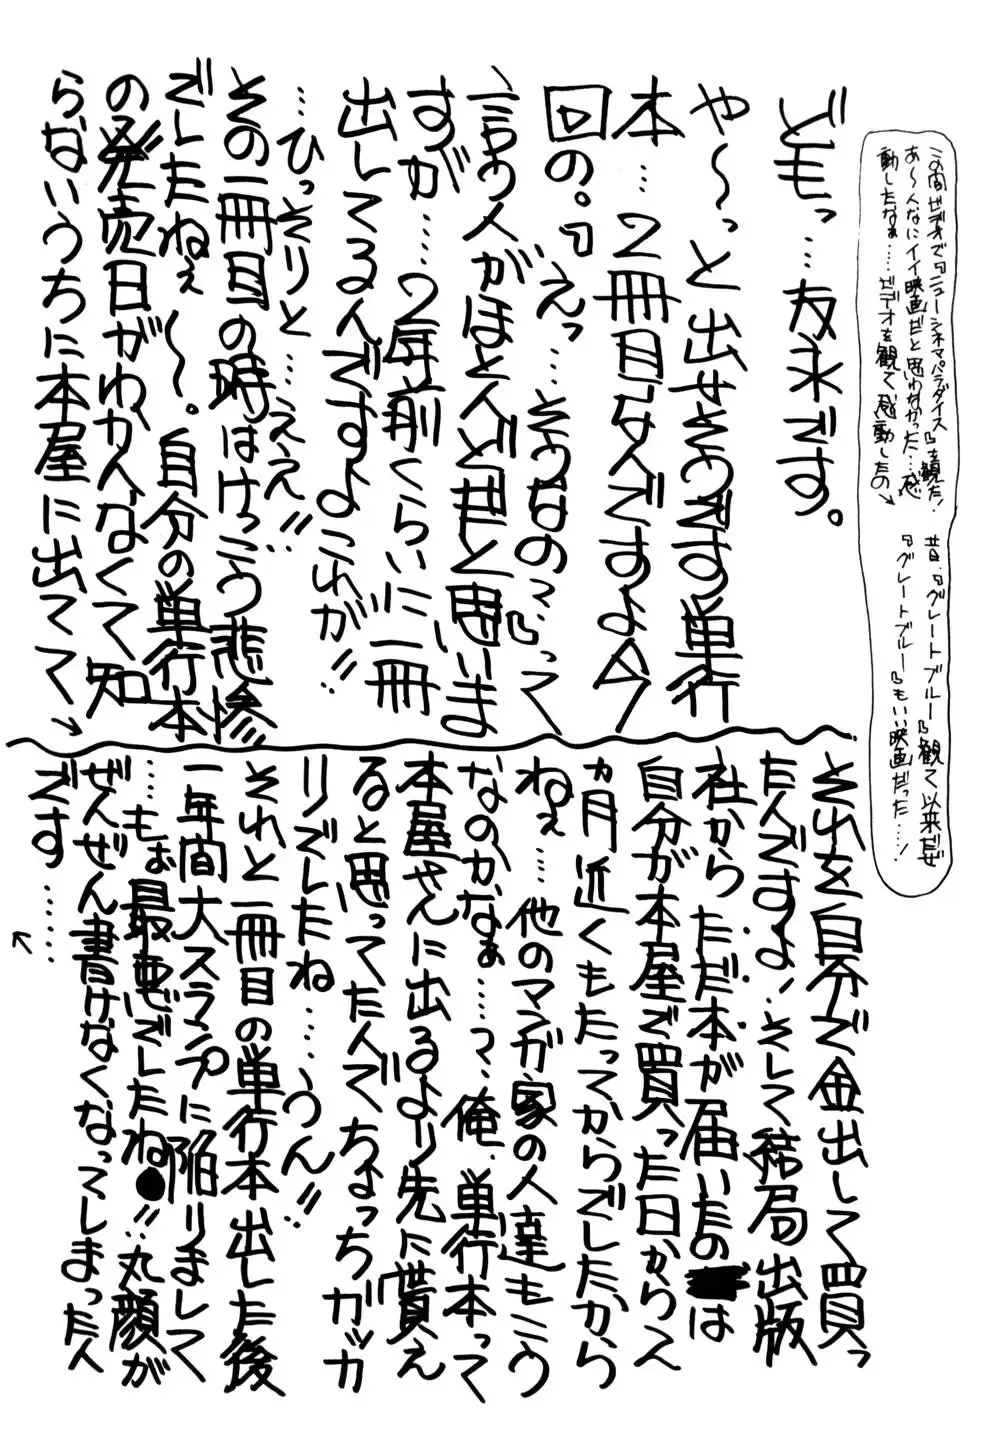 どもっ…友永です。
や〜っと出せそうです単行
本…2冊目なんですよ今
回の。『えっ…そうなの?』って
言う人がほとんどだと思いま
すが……2年前くらいに一冊
出してるんですよこれが!!
…ひっそりと…ええ!!
その一冊目の時はけっこう悲惨
でしたねぇ〜。自分の単行本
の発売日がわかんなくて知
らないうちに本屋に出てて→
それを自分で金出して買っ
たんですよ、そして結局出版
社からただ本が届いたのは
自分が本屋で買った日から一
ヵ月近くもたってからでしたから
ねぇ……他のマンガ家の人達もこう
なのかなぁ……?、俺、単行本って
本屋さんに出るより先に貰え
ると思ってたんでちょっちガッカ
リでしたね……うん!!
それと一冊目の単行本出した後
一年間大スランプに陥りまして
……もぉ最悪でしたね!!丸顔が
ぜんぜん書けなくなってしまったん
です……
この間ビデオで『ニューシネマパラダイス』を観た!
あ〜んなにイイ映画だと思わなかった…感
動したなぁ……ビデオを観て感動したの→
昔、『グレートブルー』観て以来だぜ
『グレートブルー』もいい映画だった……!